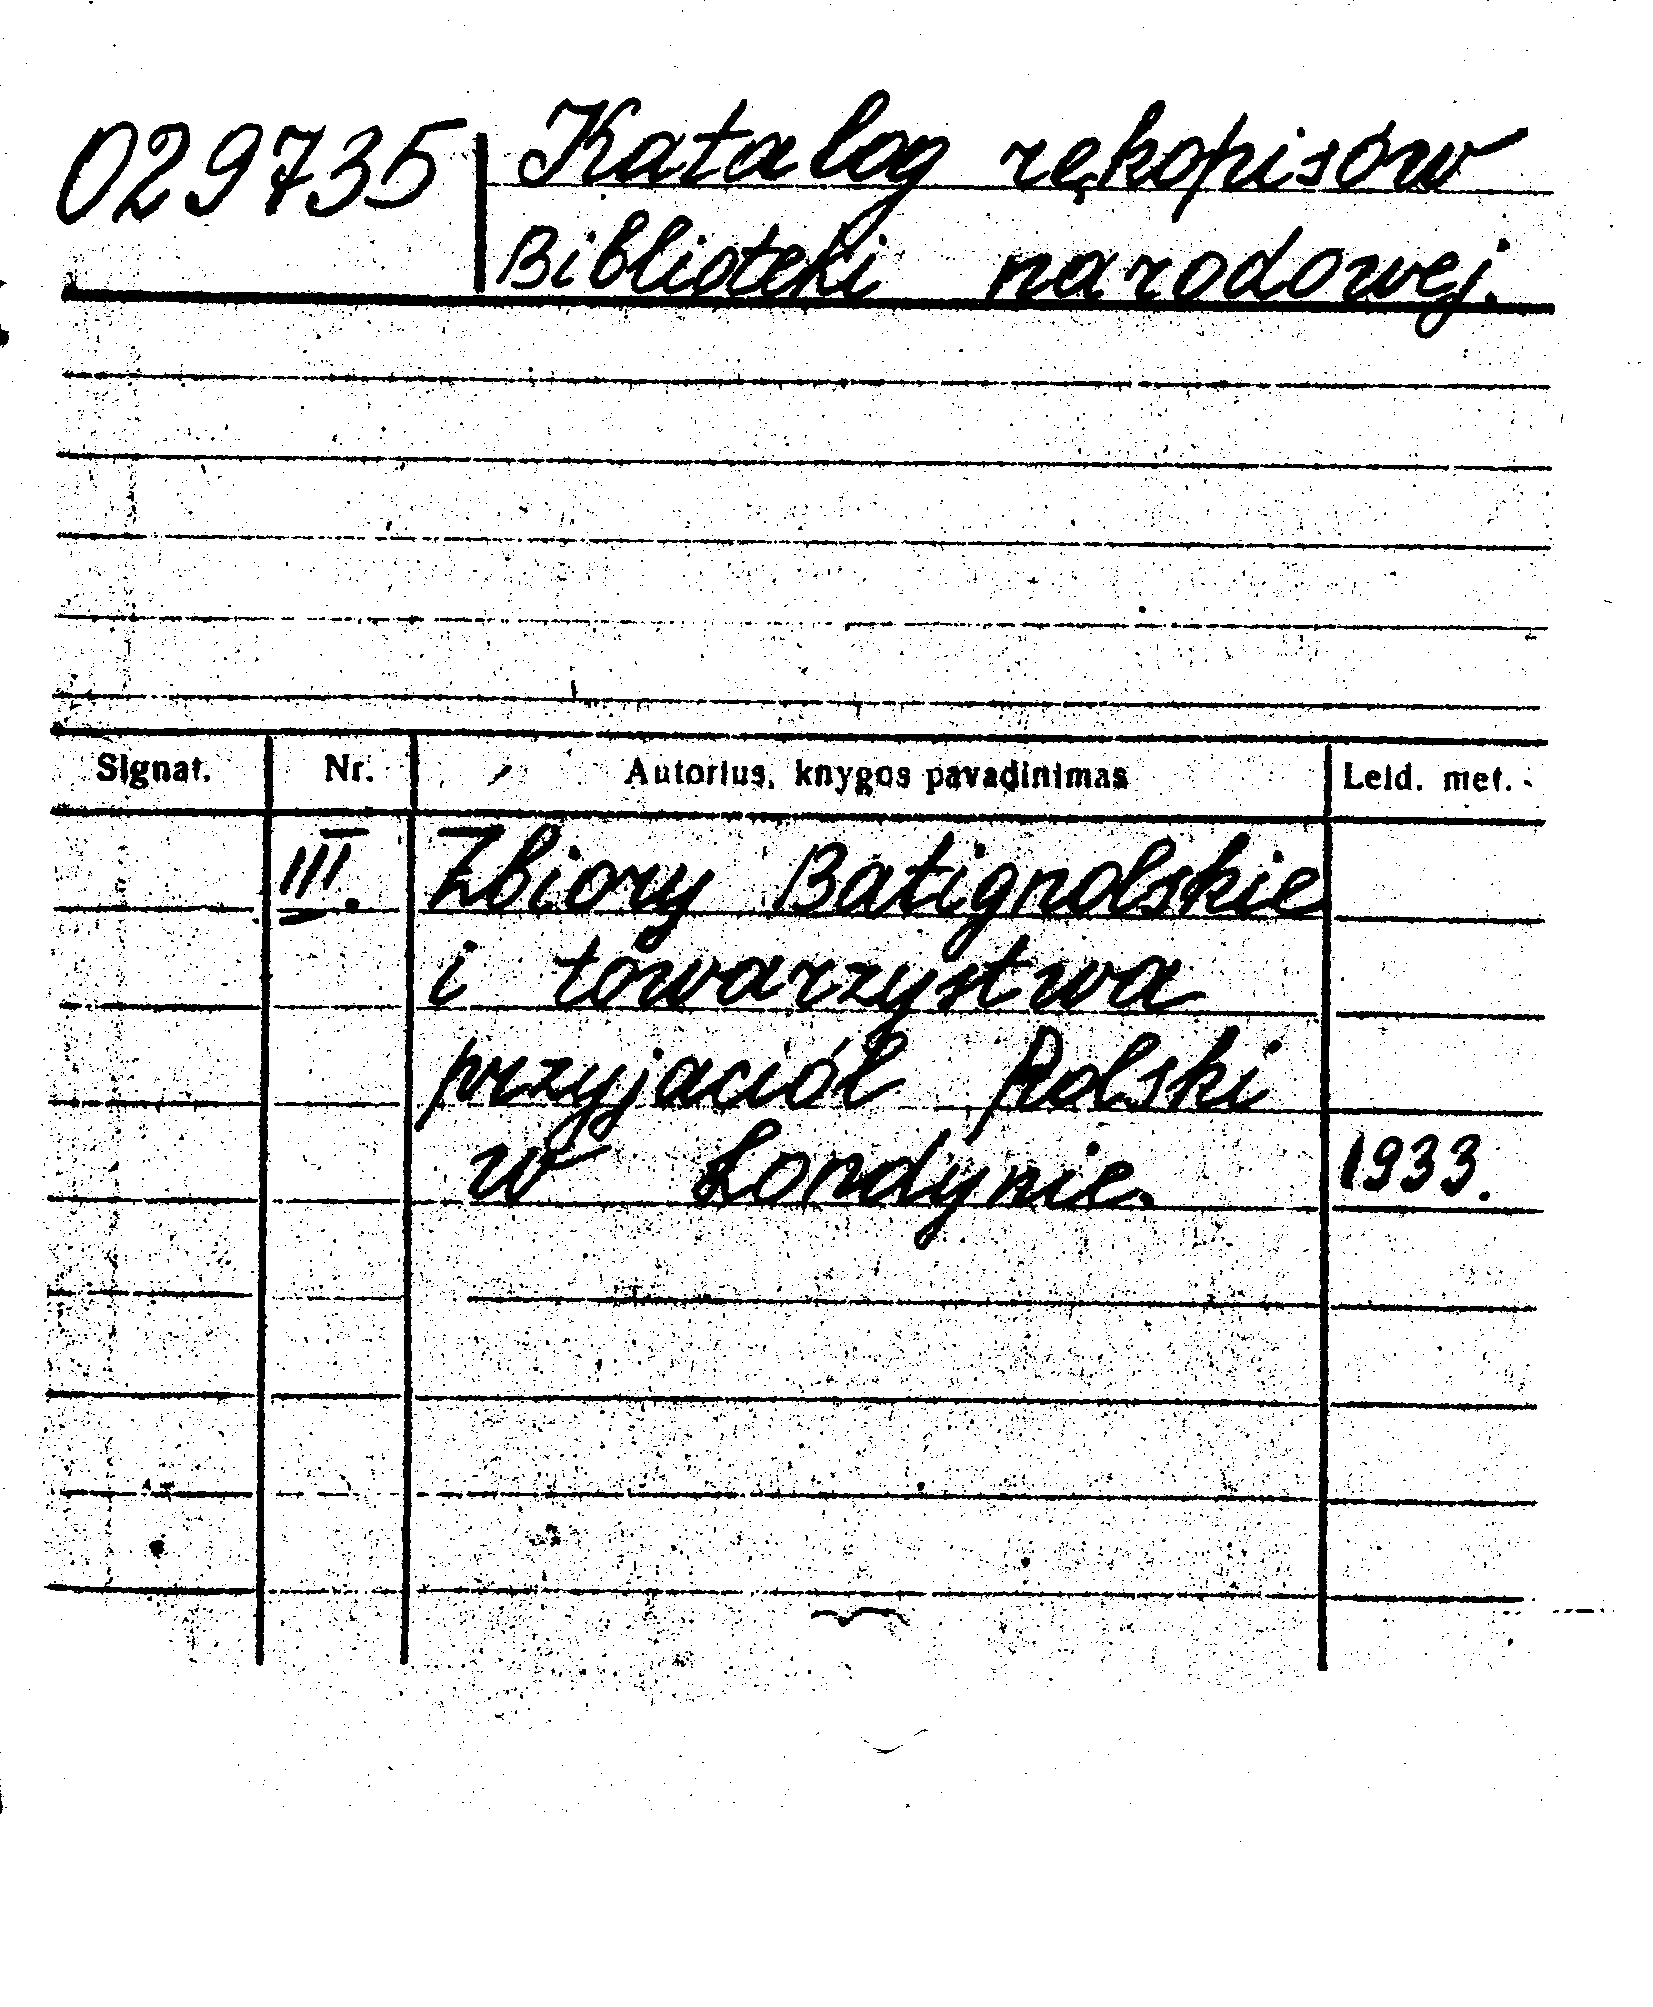 029735 Katalog rękopisów
Biblioteki narodowej.
Signat. Nr. Autorius, knygos pavadinimas Leid. met.
III. Zbiory Batignolskie
i towarzystwa
przyjaciół Polski
w Londynie. 1933.